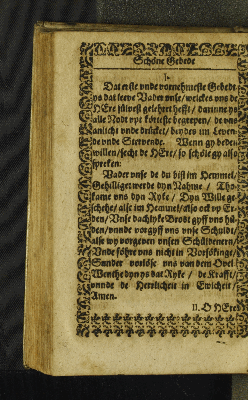 Schöne Gebede
I.
Dat erste vnde vornehmeste Gebedt
ys dat leeve Vader vnse / welckes vns de
HEre sülvest gelehret hefft / darinne ys
alle Nodt vpt körteste begrepen / de vns
anlicht vnde drücket / beydes im Leven-
de vnde Stervende. Wenn gy beden
willen / secht de HEre / so schöle gy also
spreken:
Vader vnse de du bist im Hemmel /
Gehilliget werde dyn Nahme / Tho-
kame vns dyn Ryke / Dyn Wille ge-
schehe / alse im Hemmel / also ock vp Er-
den / Vnse dachlyke Brodt gyff vns hü-
den / vnnde vorgyff vns vnse Schuldt /
alse wy vorgeven vnsen Schüldenern /
Vndeföhre vns nicht in Vorsökinge /
Sunder vorlöse vns van dem Övel
Wente dyn ys dat Ryke / de Krafft /
vnnde de Herrlicheit in Ewicheit /
Amen.
II. O HEre